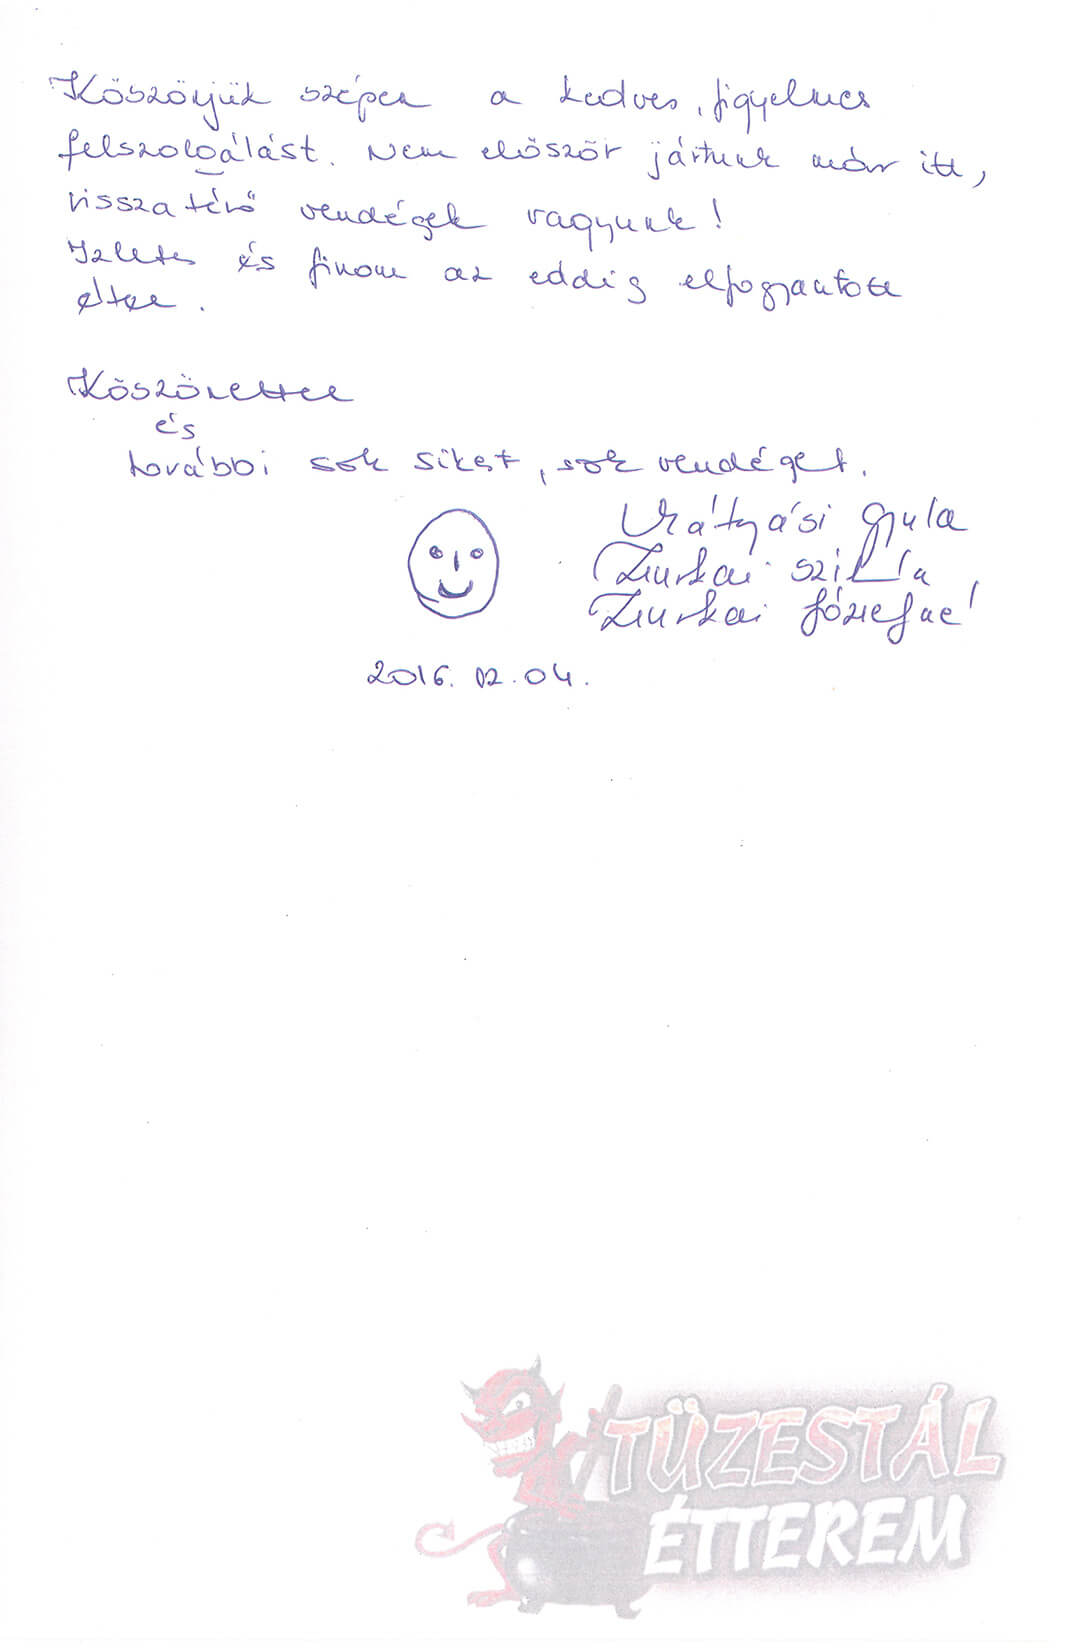 Köszönjük szépen a kedves, figyelmes
felszolgálást. Nem először jártunk már itt,
visszatérő vendégek vagyunk!
Izletes és finom az eddig elfogyasztott
étel.
Köszönettel
és
további sok sikert, sok vendéget.
Mátyási Gyula
Zsurkai Szilvia
Zsurkai Józsefné!
2016. 02. 04.
TÜZESTÁL
ÉTTEREM